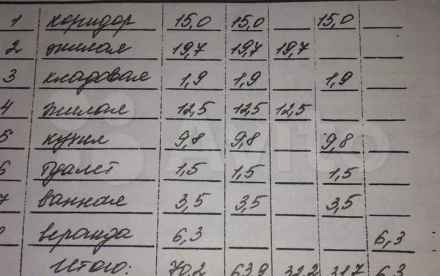 1 коридор 15,0 15,0 15,0
2 жилая 19,7 19,7 19,7
3 кладовая 1,9 1,9 1,9
4 жилая 12,5 12,5 12,5
5 кухня 9,8 9,8 9,8
6 туалет 1,5 1,5 1,5
7 ванная 3,5 3,5 3,5
веранда 6,3 6,3
Итого: 70,2 63,9 32,2 31,7 6,3
Avito